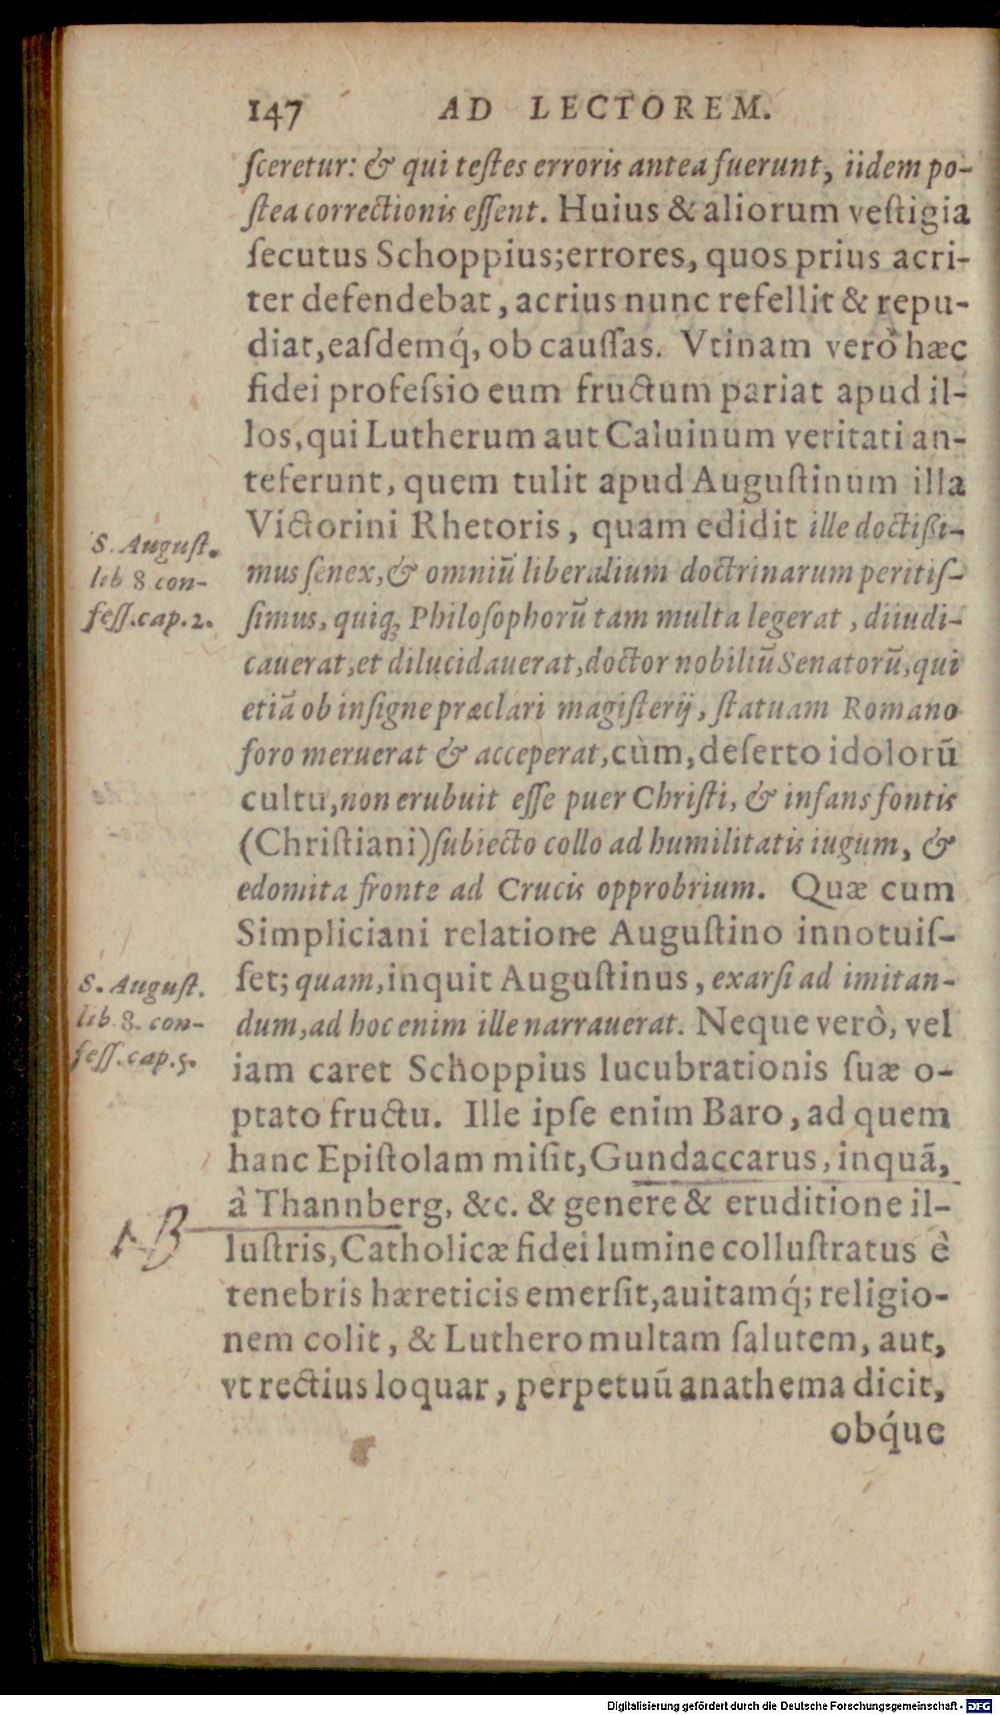 147 AD LECTOREM.
ſceretur: & qui teſtes erroris antea fuerunt, iidem po-
ſtea correctionis eſſent. Huius & aliorum veſtigia
ſecutus Schoppius; errores, quos prius acri-
ter defendebat, acrius nunc refellit & repu-
diat, eaſdemq́, ob cauſſas. Vtinam verò hæc
fidei profeſsio eum fructum pariat apud il-
los, qui Lutherum aut Caluinum veritati an-
teferunt, quem tulit apud Auguſtinum illa
Victorini Rhetoris, quam edidit ille doctißi-
S. Auguſt.
lib 8 con-
feſſ. cap. 2.
mus ſenex, & omniũ liberalium doctrinarum peritiſ-
ſimus, quiq; Philoſophorũ tam multa legerat, diiudi-
cauerat, et dilucidauerat, doctor nobiliũ Senatorũ, qui
etiã ob inſigne præclari magiſterij, ſtatuam Romano
foro meruerat & acceperat, cùm, deſerto idolorũ
cultu, non erubuit eſſe puer Chriſti, & infans fontis
(Chriſtiani) ſubiecto collo ad humilitatis iugum, &
edomita fronte ad Crucis opprobrium. Quæ cum
Simpliciani relatione Auguſtino innotuiſ-
S. Auguſt.
lib. 8. con-
feſſ. cap. 5.
ſet; quam, inquit Auguſtinus, exarſi ad imitan-
dum, ad hoc enim ille narrauerat. Neque verò, vel
iam caret Schoppius lucubrationis ſuæ o-
ptato fructu. Ille ipſe enim Baro, ad quem
hanc Epiſtolam miſit, Gundaccarus, inquã,
à Thannberg, &c. & genere & eruditione il-
NB
luſtris, Catholicæ fidei lumine colluſtratus è
tenebris hæreticis emerſit, auitamq́; religio-
nem colit, & Luthero multam ſalutem, aut,
vt rectius loquar, perpetuũ anathema dicit,
obq́ue
Digitalisierung gefördert durch die Deutsche Forschungsgemeinschaft - DFG